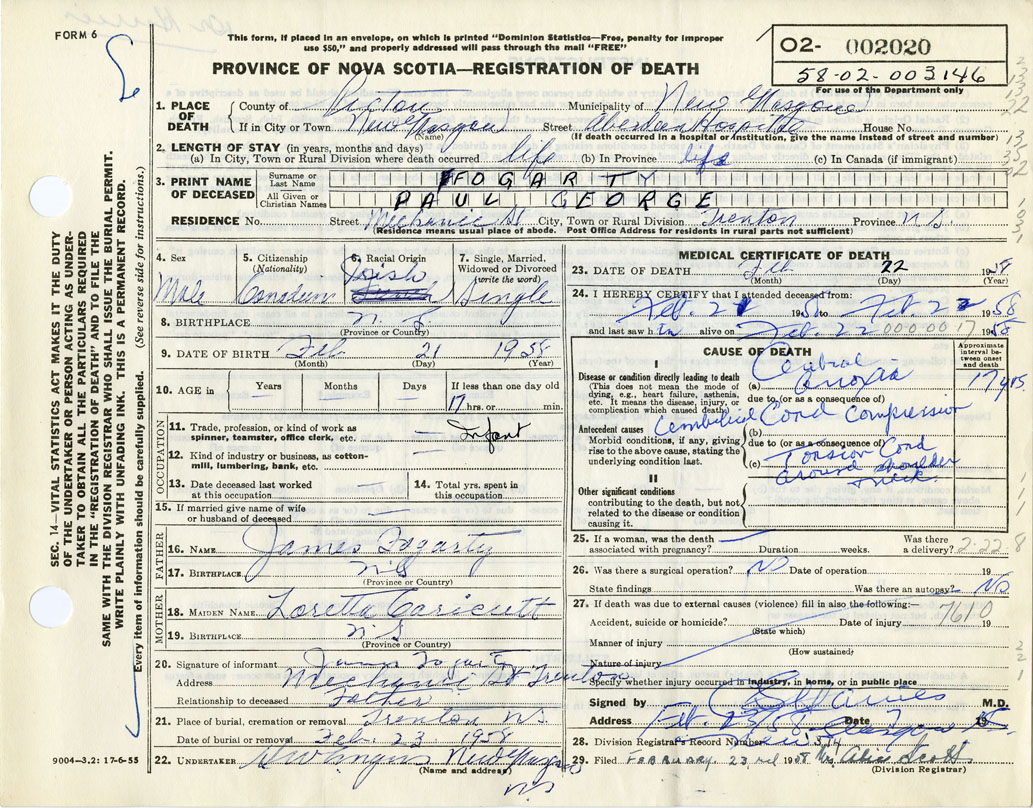 FORM 6
This form, if placed in an envelope, on which is printed "Dominion Statistics—Free, penalty for improper
use $50," and properly addressed will pass through the mail "FREE"
PROVINCE OF NOVA SCOTIA—REGISTRATION OF DEATH
O2- 002020
58-02-003146
For use of the Department only
SEC. 14—VITAL STATISTICS ACT MAKES IT THE DUTY
OF THE UNDERTAKER OR PERSON ACTING AS UNDER-
TAKER TO OBTAIN ALL THE PARTICULARS REQUIRED
IN THE "REGISTRATION OF DEATH" AND TO FILE THE
SAME WITH THE DIVISION REGISTRAR WHO SHALL ISSUE THE BURIAL PERMIT.
WRITE PLAINLY WITH UNFADING INK. THIS IS A PERMANENT RECORD.
Every item of information should be carefully supplied. (See reverse side for instructions.)
1. PLACE OF DEATH
County of Pictou Municipality of New Glasgow
If in City or Town New Glasgow Street Aberdeen Hospital House No.
(Name) (If death occurred in a hospital or institution, give the name instead of street and number)
2. LENGTH OF STAY (in years, months and days)
(a) In City, Town or Rural Division where death occurred life (b) In Province life (c) In Canada (if immigrant)
3. PRINT NAME OF DECEASED
Surname or Last Name FOGARTY
All Given or Christian Names PAUL GEORGE
RESIDENCE No. Street Mechanic St City, Town or Rural Division Trenton Province N S
(Residence means usual place of abode. Post Office Address for residents in rural parts not sufficient)
4. Sex 5. Citizenship (Nationality) 6. Racial Origin 7. Single, Married, Widowed or Divorced (write the word)
Male Canadian Irish Single
8. BIRTHPLACE N. S
(Province or Country)
9. DATE OF BIRTH Feb. 21 1958
(Month) (Day) (Year)
10. AGE in Years Months Days If less than one day old
17 hrs. or min.
OCCUPATION
11. Trade, profession, or kind of work as
spinner, teamster, office clerk, etc. Infant
12. Kind of industry or business, as cotton-
mill, lumbering, bank, etc.
13. Date deceased last worked
at this occupation
14. Total yrs. spent in
this occupation
15. If married give name of wife
or husband of deceased
FATHER
16. NAME James Fogarty
17. BIRTHPLACE N S
(Province or Country)
MOTHER
18. MAIDEN NAME Loretta
19. BIRTHPLACE N S
(Province or Country)
20. Signature of informant James Fogarty
Address Mechanic St Trenton
Relationship to deceased Father
21. Place of burial, cremation or removal Trenton N.S.
Date of burial or removal Feb. 23 1958
22. UNDERTAKER New Glasgow
(Name and address) N.S
9004—3.2: 17-6-55
MEDICAL CERTIFICATE OF DEATH
23. DATE OF DEATH Feb 22 1958
(Month) (Day) (Year)
24. I HEREBY CERTIFY that I attended deceased from:
Feb. 21 1958 to Feb. 22 1958
and last saw h im alive on Feb. 22 00000 17 1958
CAUSE OF DEATH
Approximate interval between onset and death
I
Disease or condition directly leading to death
(This does not mean the mode of
dying, e.g., heart failure, asthenia,
etc. It means the disease, injury, or
complication which caused death)
(a) Cerebral Anoxia 17 hrs
due to (or as a consequence of)
Antecedent causes
Morbid conditions, if any, giving
rise to the above cause, stating the
underlying condition last.
(b) Umbilical Cord Compression
due to (or as a consequence of)
(c) Torsion Cord
around shoulder
neck.
II
Other significant conditions
contributing to the death, but not
related to the disease or condition
causing it.
25. If a woman, was the death
associated with pregnancy? Duration weeks. Was there
a delivery? 2-22 8
26. Was there a surgical operation? No Date of operation 19
State findings Was there an autopsy? No
27. If death was due to external causes (violence) fill in also the following:—
7610
Accident, suicide or homicide? Date of injury 19
(State which)
Manner of injury
(How sustained)
Nature of injury
Specify whether injury occurred in industry, in home, or in public place
Signed by M.D.
Address Feb. 23/58 Date 19
28. Division Registrar's Record Number
29. Filed FEBRUARY 23 rd 1958 Mrs. Alice Scott
(Division Registrar)